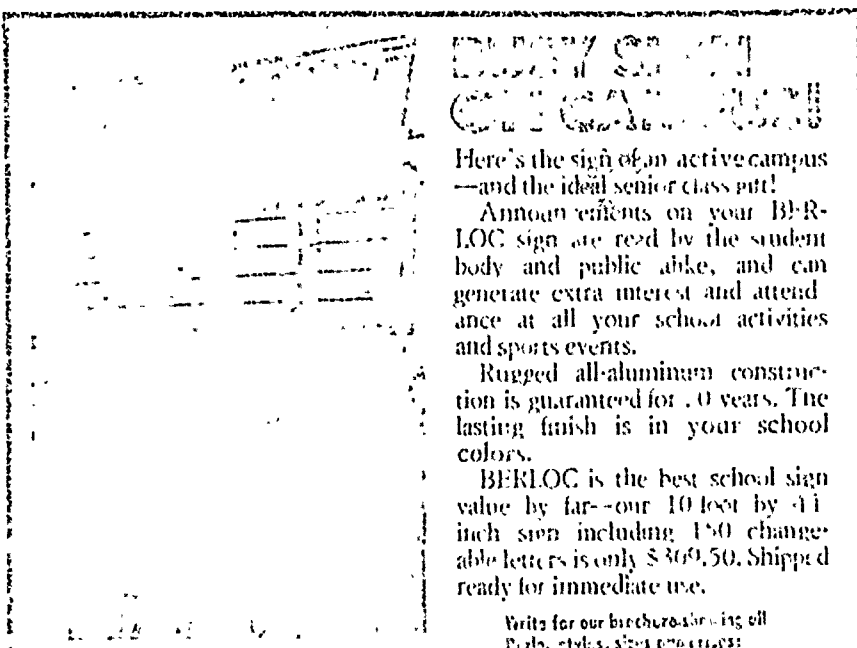 Here's the sign of an active campus
—and the ideal senior class gift!
Announcements on your BER-
LOC sign are read by the student
body and public alike, and can
generate extra interest and attend-
ance at all your school activities
and sports events.
Rugged all-aluminum construc-
tion is guaranteed for years. The
lasting finish is in your school
colors.
BERLOC is the best school sign
value by far--our 10 foot by
inch sign including 150 change-
able letters is only $369.50. Shipped
ready for immediate use.
Write for our brochure showing all
styles, sizes